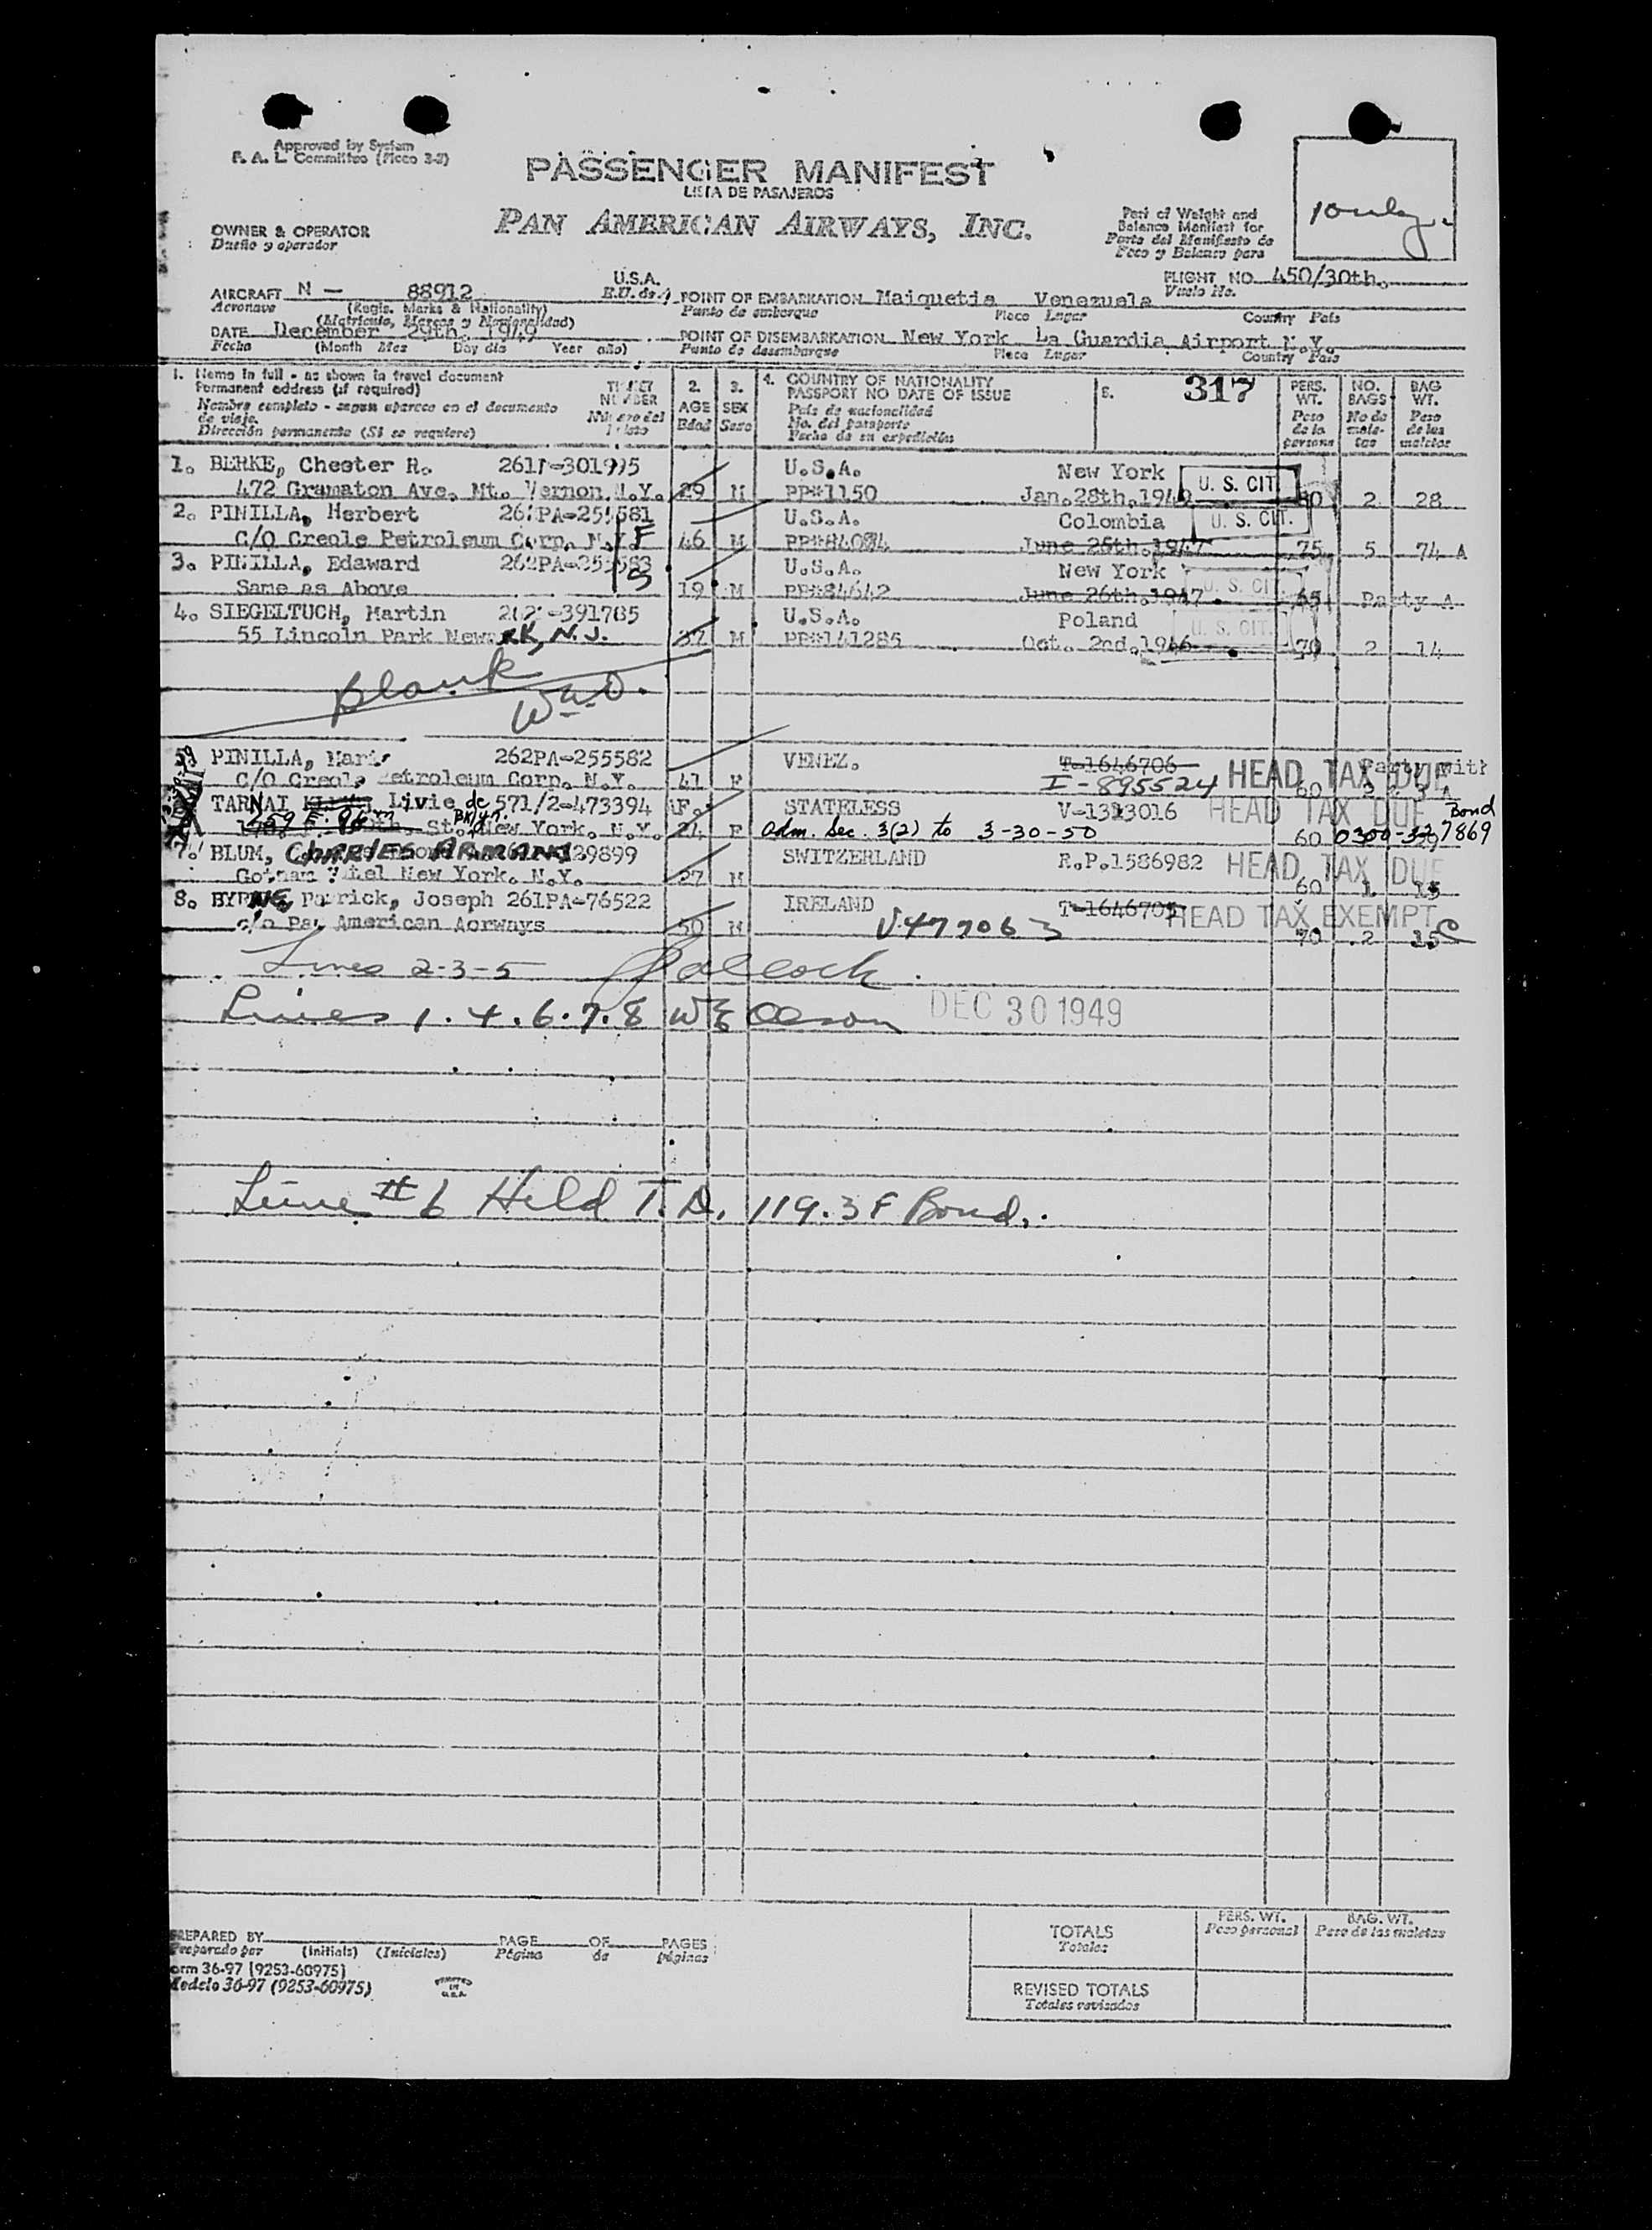 Approved by System
F. A. L. Committee (Meco 3-3)
PASSENGER MANIFEST
LISTA DE PASAJEROS
PAN AMERICAN AIRWAYS, INC.
OWNER & OPERATOR
Dueño y operador
Part of Weight and
Balance Manifest for
Parte del Manifiesto de
Peso y Balance para
FLIGHT NO. 450/30th.
Vuelo No.
AIRCRAFT N - 88912 U.S.A.
Aeronave (Regis. Marks & Nationality) E.U. de A
(Matricula, Marcas y Nacionalidad)
POINT OF EMBARKATION Maiquetia Venezuela
Punto de embarque Place Lugar Country Pais
DATE December 29th. 1949
Fecha (Month Mes Day dia Year año)
POINT OF DISEMBARKATION New York La Guardia Airport N.Y.
Punto de desembarque Place Lugar Country Pais
1. Name in full - as shown in travel document
Permanent address (if required)
Nombre completo - segun aparece en el documento
de viaje.
Dirección permanente (Si se requiere)
TICKET
NUMBER
Número del
2.
AGE
Edad
3.
SEX
Sexo
4. COUNTRY OF NATIONALITY
PASSPORT NO DATE OF ISSUE
País de nacionalidad
No. del pasaporte
Fecha de su expedición
5. 317
PERS.
WT.
Peso
de la
persona
NO.
BAGS
No de
male-
tas
BAG
WT.
Peso
de las
maletas
1. BERKE, Chester R. U.S.A. New York U. S. CIT.
472 Gramaton Ave. Mt. Vernon N.Y. 29 M PP#1150 Jan.28th.1949 2 28
2. PINILLA, Herbert U.S.A. Colombia U. S. CIT.
C/O Creole Petroleum Corp. N.Y. 46 M June 26th.1947 75 5 74 A
3. PINILLA, Edaward U.S.A. New York U. S. CIT
Same as Above 19 M PP#84642 June 26th.1947 65 Party A
4. SIEGELTUCH, Martin U.S.A. Poland U. S. CIT.
55 Lincoln Park Newark, N.J. 37 M PP#141285 Oct. 2nd.1946 70 2 14
Blank
PINILLA, Marie 262PA-255582 VENEZ. T-1646706 HEAD TAX DUE Party with
C/O Creole Petroleum Corp. N.Y. 41 F I-895524 60
TARNAI Livie de 571/2-473394 STATELESS V-1313016 HEAD TAX DUE Bond
St. New York. N.Y. 24 F Adm. Sec. 3(2) to 3-30-50 60 7869
7. BLUM, CHARLES ARMAND 29899 SWITZERLAND R.P.1586982 HEAD TAX DUE
Gotham Hotel New York. N.Y. 27 M 60 1 15
8. BYRNE, Patrick, Joseph 261PA-76522 IRELAND HEAD TAX EXEMPT
c/o Pan American Aorways 50 M V477063 70 2 15
Lines 2-3-5
Lines 1.4.6.7.8 DEC 30 1949
Line #6 Held T.D. 119.3F Bond.
PREPARED BY PAGE OF PAGES
Preparado por (Initials) (Iniciales) Página de páginas
orm 36-97 (9253-60975)
Modelo 36-97 (9253-60975)
PRINTED
IN
U.S.A.
TOTALS
Totales
PERS. WT.
Peso personal
BAG. WT.
Peso de las maletas
REVISED TOTALS
Totales revisados